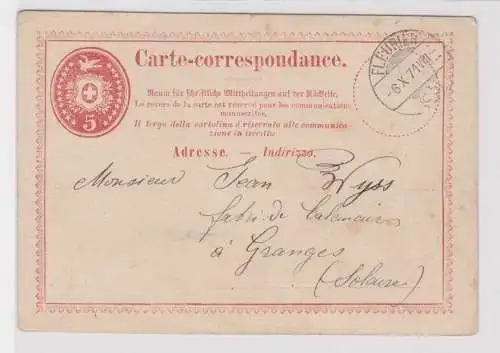 Carte-correspondance.
FLEURIER
-6.X.71.VIII
Raum für schriftliche Mittheilungen auf der Rückseite.
Le revers de la carte est réservé pour les communications
manuscrites.
Il tergo della cartolina è riservato alle comunica-
zione in iscritto
5
Adresse. — Indirizzo.
Monsieur Jean Wyss
fabt. de
à Granges
(Soleure)